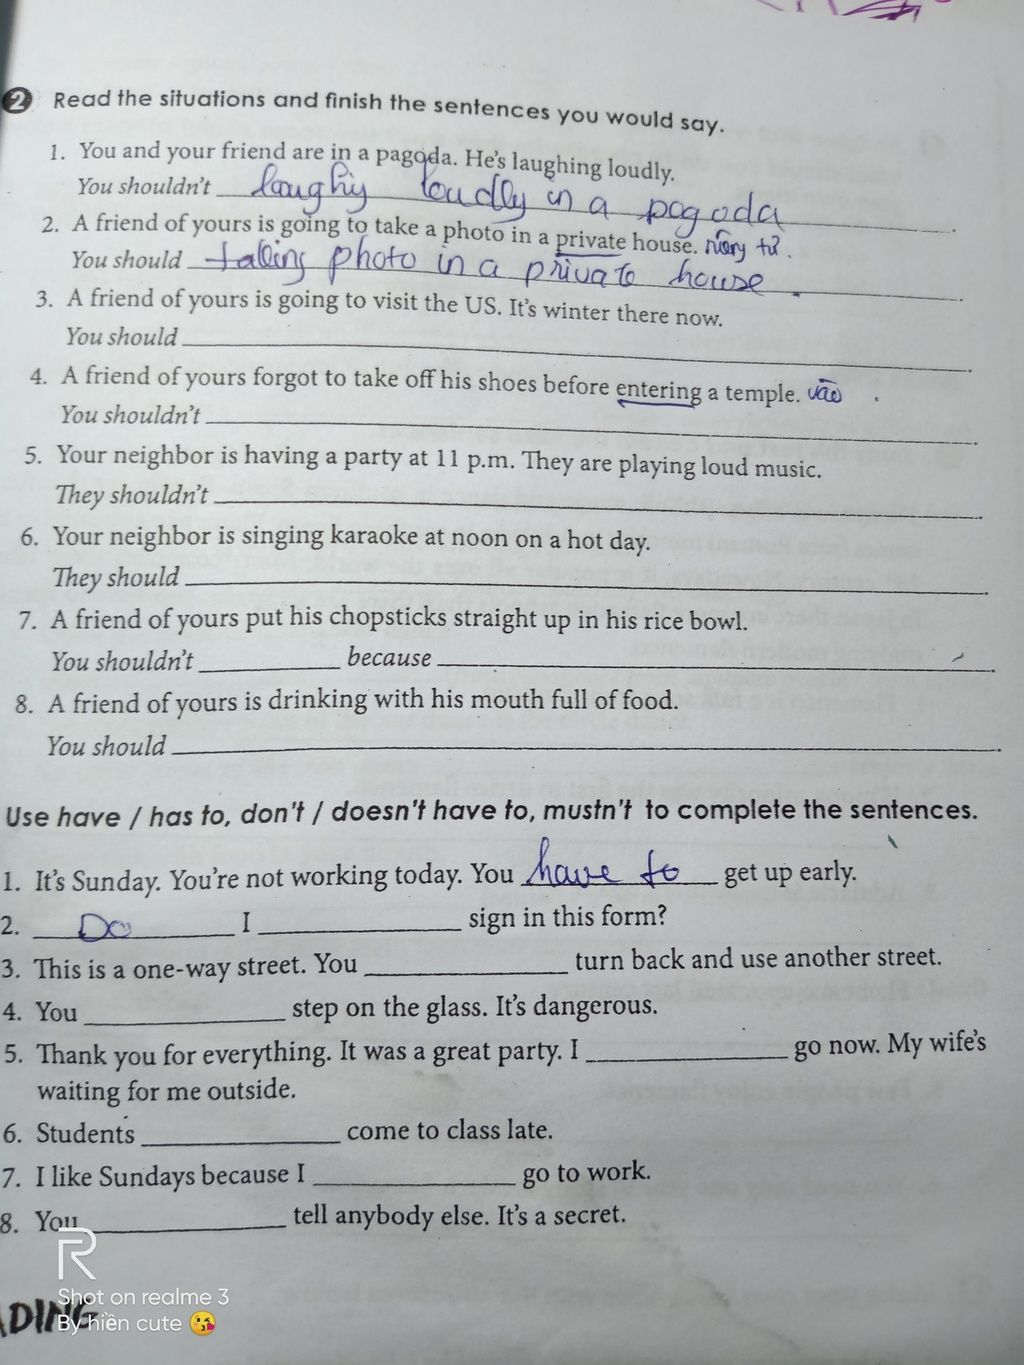 2 Read the situations and finish the sentences you would say.
1. You and your friend are in a pagoda. He's laughing loudly.
You shouldn't laughiy loudly in a pogoda.
2. A friend of yours is going to take a photo in a private house.
You should taking photo in a private house.
3. A friend of yours is going to visit the US. It's winter there now.
You should
4. A friend of yours forgot to take off his shoes before entering a temple. vào
You shouldn't
5. Your neighbor is having a party at 11 p.m. They are playing loud music.
They shouldn't
6. Your neighbor is singing karaoke at noon on a hot day.
They should
7. A friend of yours put his chopsticks straight up in his rice bowl.
You shouldn't because
8. A friend of yours is drinking with his mouth full of food.
You should
Use have / has to, don't / doesn't have to, mustn't to complete the sentences.
1. It's Sunday. You're not working today. You have to get up early.
2. Do I sign in this form?
3. This is a one-way street. You turn back and use another street.
4. You step on the glass. It's dangerous.
5. Thank you for everything. It was a great party. I go now. My wife's
waiting for me outside.
6. Students come to class late.
7. I like Sundays because I go to work.
8. You tell anybody else. It's a secret.
R
Shot on realme 3
ADING
By hiền cute 😘